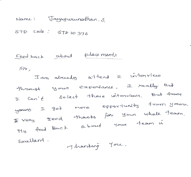 Name : Jayapurusothaman. S
STD Code :
Feed back about placements
Sir,
I am already attend a interview
through your Consultancy, I really But
I Can't Select those interviews. But from
years I got more opportunity from yours.
I very good thanks for your whole team.
My feed back about your team is
Excellent.
Thanking You.